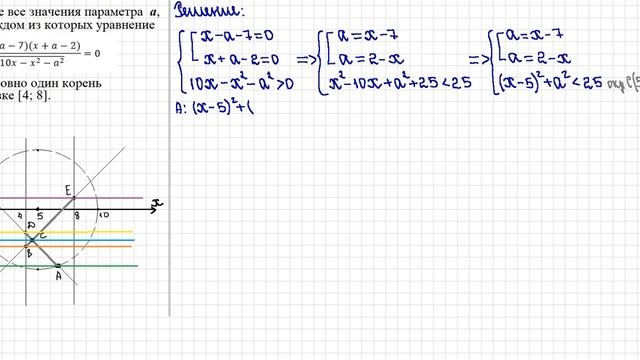 е все значения параметра a,
ждом из которых уравнение
a − 7)(x + a − 2)
10x − x² − a²
= 0
овно один корень
вке [4; 8].
Решение:
{ [ x−a−7=0
x+a−2=0
10x−x²−a²>0
=> { [ a=x−7
a=2−x
x²−10x+a²+25<25
=> { [ a=x−7
a=2−x
(x−5)²+a²<25 окр
A: (x−5)²+(
E
x
4 5 8 10
D
C
B
A